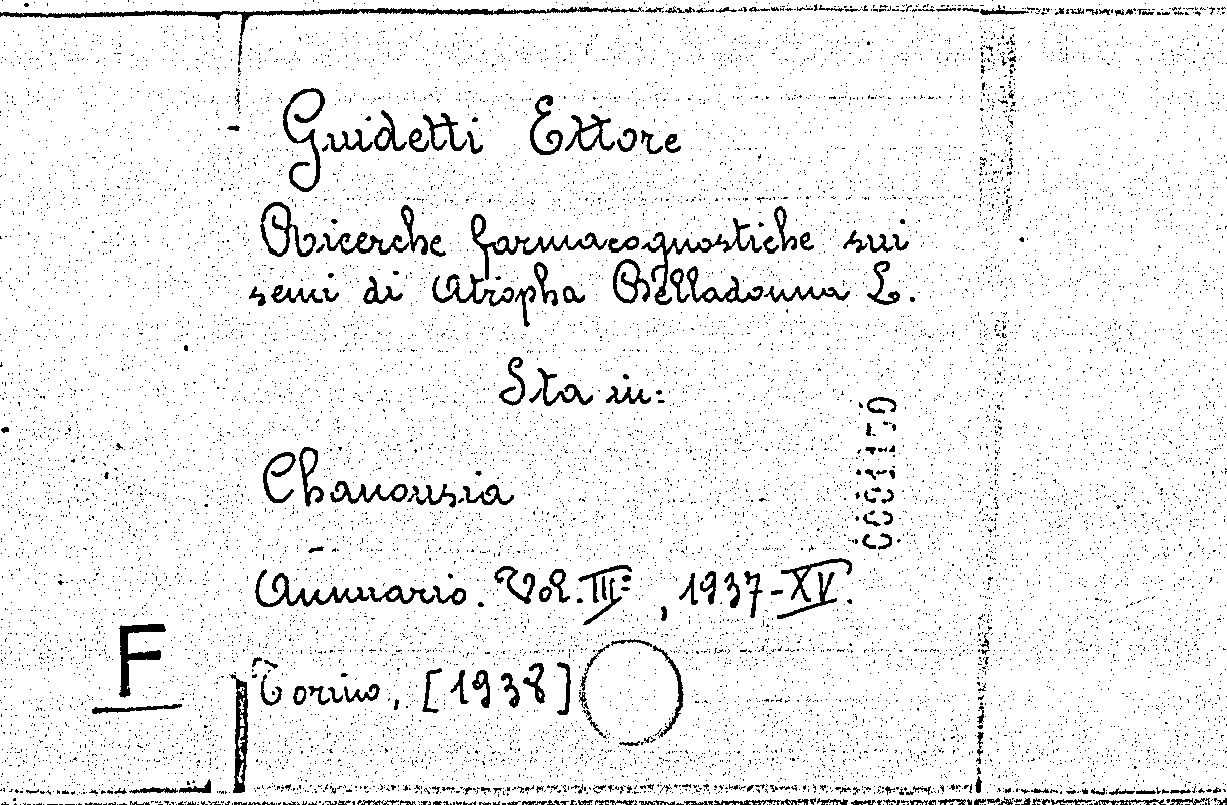 Guidetti Ettore
Ricerche farmacognostiche sui
semi di Atropha Belladonna L.
Sta in:
Chanousia
Annuario. Vol. III°, 1937-XV.
Torino, [1938]
F
0001159